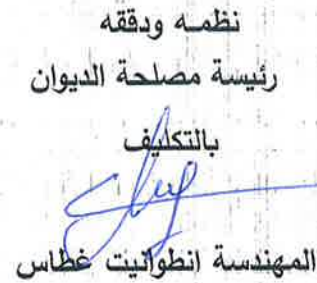 نظمه ودققه
رئيسة مصلحة الديوان
بالتكليف
المهندسة انطوانيت غطاس